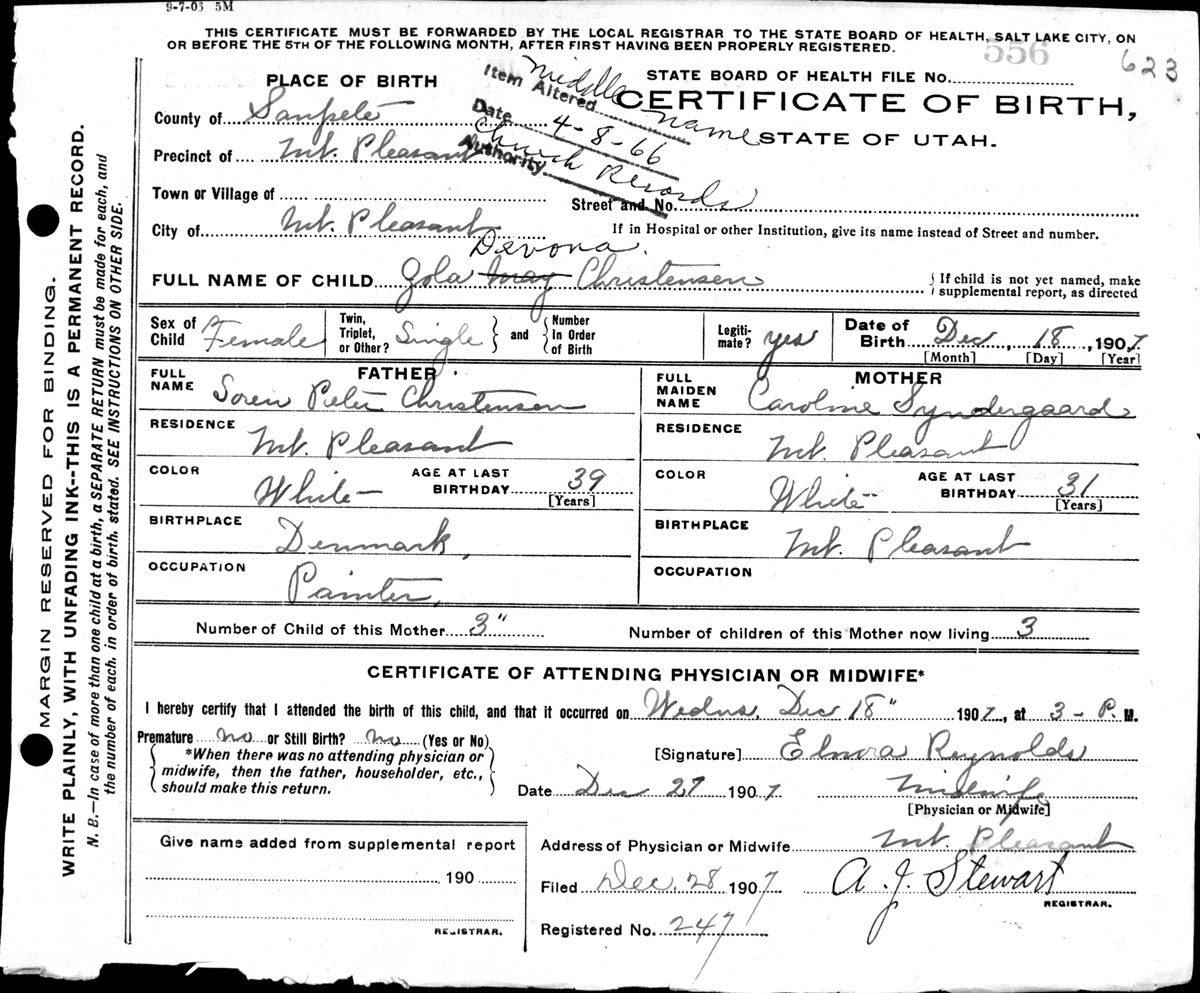 9-7-03 5M
THIS CERTIFICATE MUST BE FORWARDED BY THE LOCAL REGISTRAR TO THE STATE BOARD OF HEALTH, SALT LAKE CITY, ON
OR BEFORE THE 5TH OF THE FOLLOWING MONTH, AFTER FIRST HAVING BEEN PROPERLY REGISTERED.
556
623
PLACE OF BIRTH
STATE BOARD OF HEALTH FILE NO.
Item Altered middle name
Date 4-8-66
Authority Church Records
CERTIFICATE OF BIRTH,
STATE OF UTAH.
County of Sanpete
Precinct of Mt. Pleasant
Town or Village of
Street and No.
City of Mt. Pleasant
If in Hospital or other Institution, give its name instead of Street and number.
Devona
FULL NAME OF CHILD Zola May Christensen
If child is not yet named, make
supplemental report, as directed
Sex of Child Female
Twin, Triplet, or Other? Single and Number in Order of Birth
Legiti-mate? yes
Date of Birth Dec 18, 1907
[Month] [Day] [Year]
FATHER
FULL NAME Soren Peter Christensen
RESIDENCE Mt. Pleasant
COLOR White AGE AT LAST BIRTHDAY 39 [Years]
BIRTHPLACE Denmark,
OCCUPATION Painter,
MOTHER
FULL MAIDEN NAME Caroline Syndergaard
RESIDENCE Mt. Pleasant
COLOR White AGE AT LAST BIRTHDAY 31 [Years]
BIRTHPLACE Mt. Pleasant
OCCUPATION
Number of Child of this Mother 3"
Number of children of this Mother now living 3
CERTIFICATE OF ATTENDING PHYSICIAN OR MIDWIFE*
I hereby certify that I attended the birth of this child, and that it occurred on Wednes, Dec 18" 1907, at 3- P. M.
Premature no or Still Birth? no (Yes or No)
*When there was no attending physician or
midwife, then the father, householder, etc.,
should make this return.
[Signature] Elnora Reynolds
Date Dec 27 1907. Midwife
[Physician or Midwife]
Give name added from supplemental report
190
REGISTRAR.
Address of Physician or Midwife Mt. Pleasant
Filed Dec. 28 1907 A. J. Stewart
REGISTRAR.
Registered No. 247
MARGIN RESERVED FOR BINDING.
WRITE PLAINLY, WITH UNFADING INK--THIS IS A PERMANENT RECORD.
N. B.—In case of more than one child at a birth, a SEPARATE RETURN must be made for each, and
the number of each, in order of birth, stated. SEE INSTRUCTIONS ON OTHER SIDE.